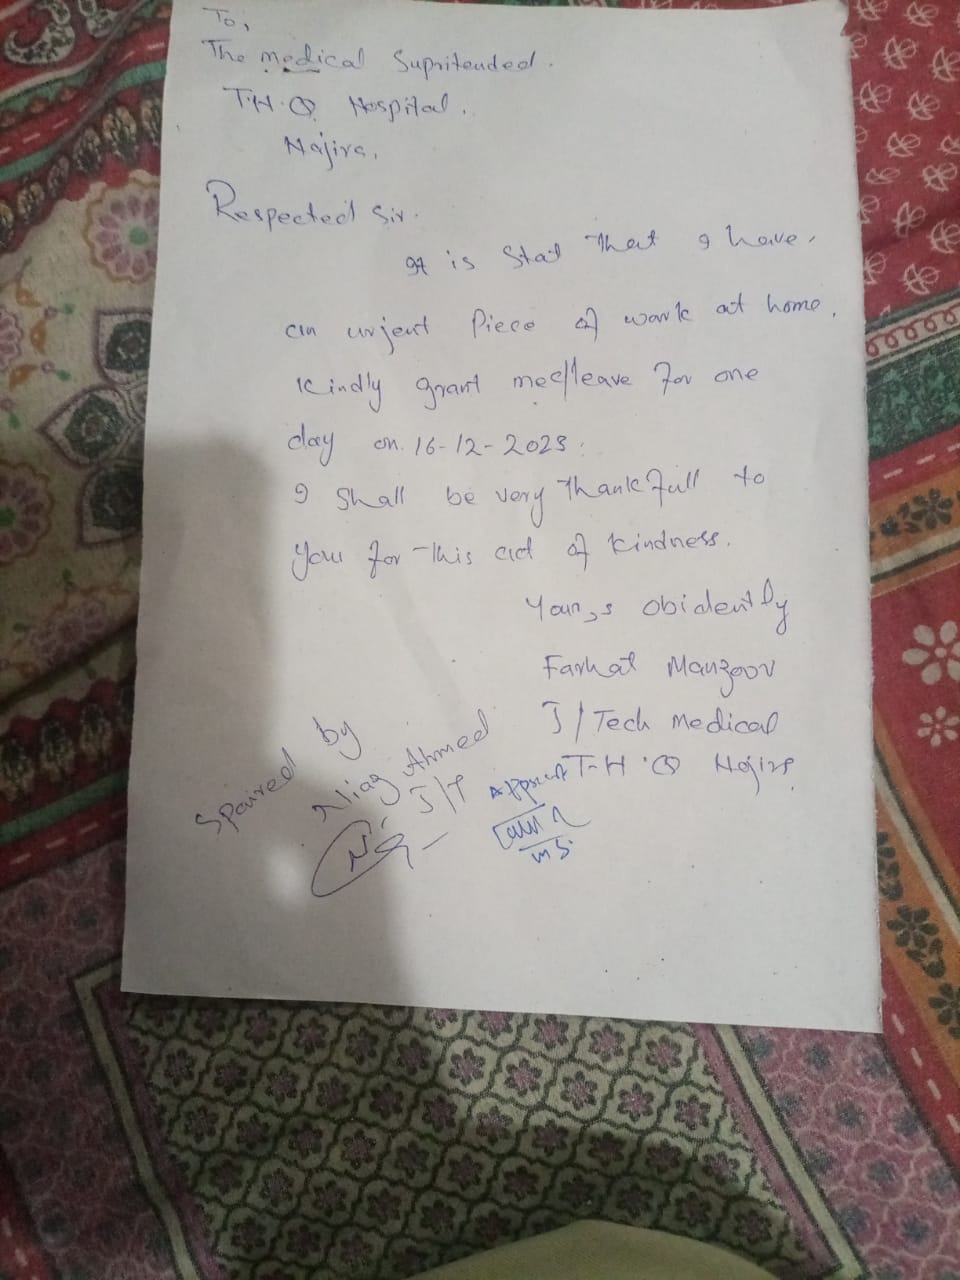 To,
The medical Supritended.
T.H.Q Hospital.
Hajira.
Respected Sir.
It is Stat That I have.
an urjent Piece of work at home.
Kindly grant me leave for one
day on. 16-12-2023.
I Shall be very Thankfull to
you for This act of kindness.
Your,s obidently
Farhat Manzoor
J/Tech medical
T-H.Q Hajira
Spaired by
Niaz Ahmed
J/T
MS